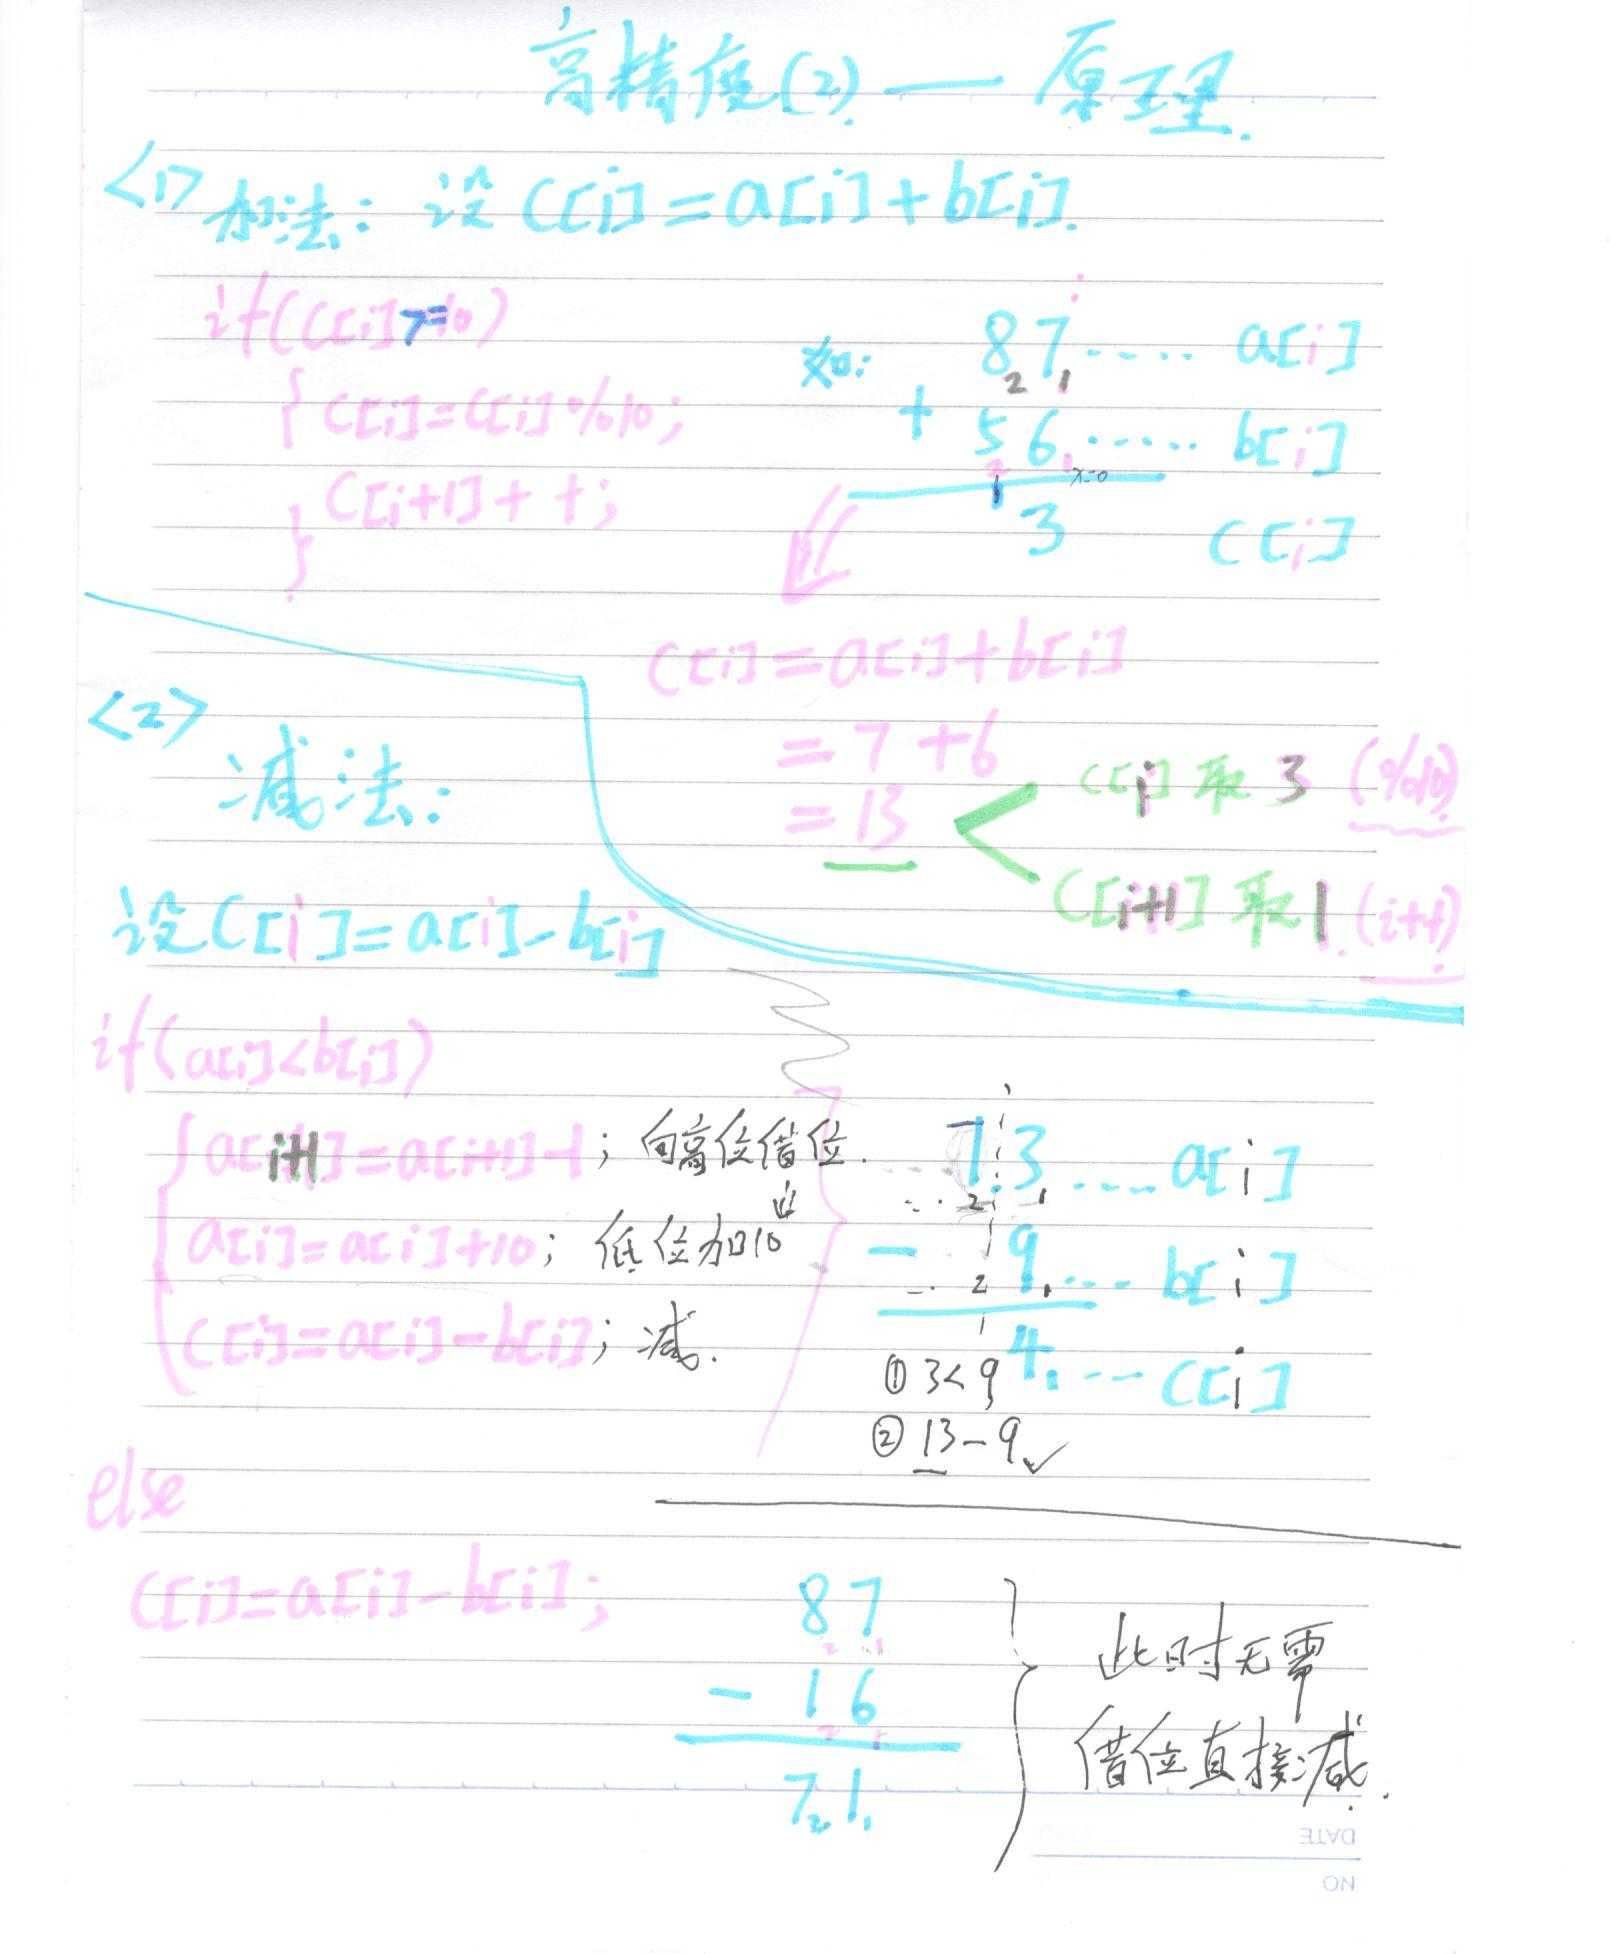 高精度(2) — 原理.
<1> 加法: 设 C[i]=a[i]+b[i].
if(C[i]>=10)
{ C[i]=C[i]%10;
C[i+1]++;
}
如:
87 ..... a[i]
2 1
+ 56 ...... b[i]
2 1 x=0
1
3 C[i]
C[i]=a[i]+b[i]
=7+6
=13
C[i] 取 3 (%10)
C[i+1] 取 1. (i++)
<2>
减法:
设 C[i]=a[i]-b[i]
if(a[i]<b[i])
{ a[i+1]=a[i+1]-1; 向高位借位.
a[i]=a[i]+10; 低位加10
C[i]=a[i]-b[i]; 减.
i
73 ..... a[i]
2 1
- 9 ... b[i]
2 1
4 ... C[i]
1
① 3<9
② 13-9 ✓
else
C[i]=a[i]-b[i];
87
2 1
- 16
2 1
71
2 1
此时无需
借位直接减.
DATE
NO